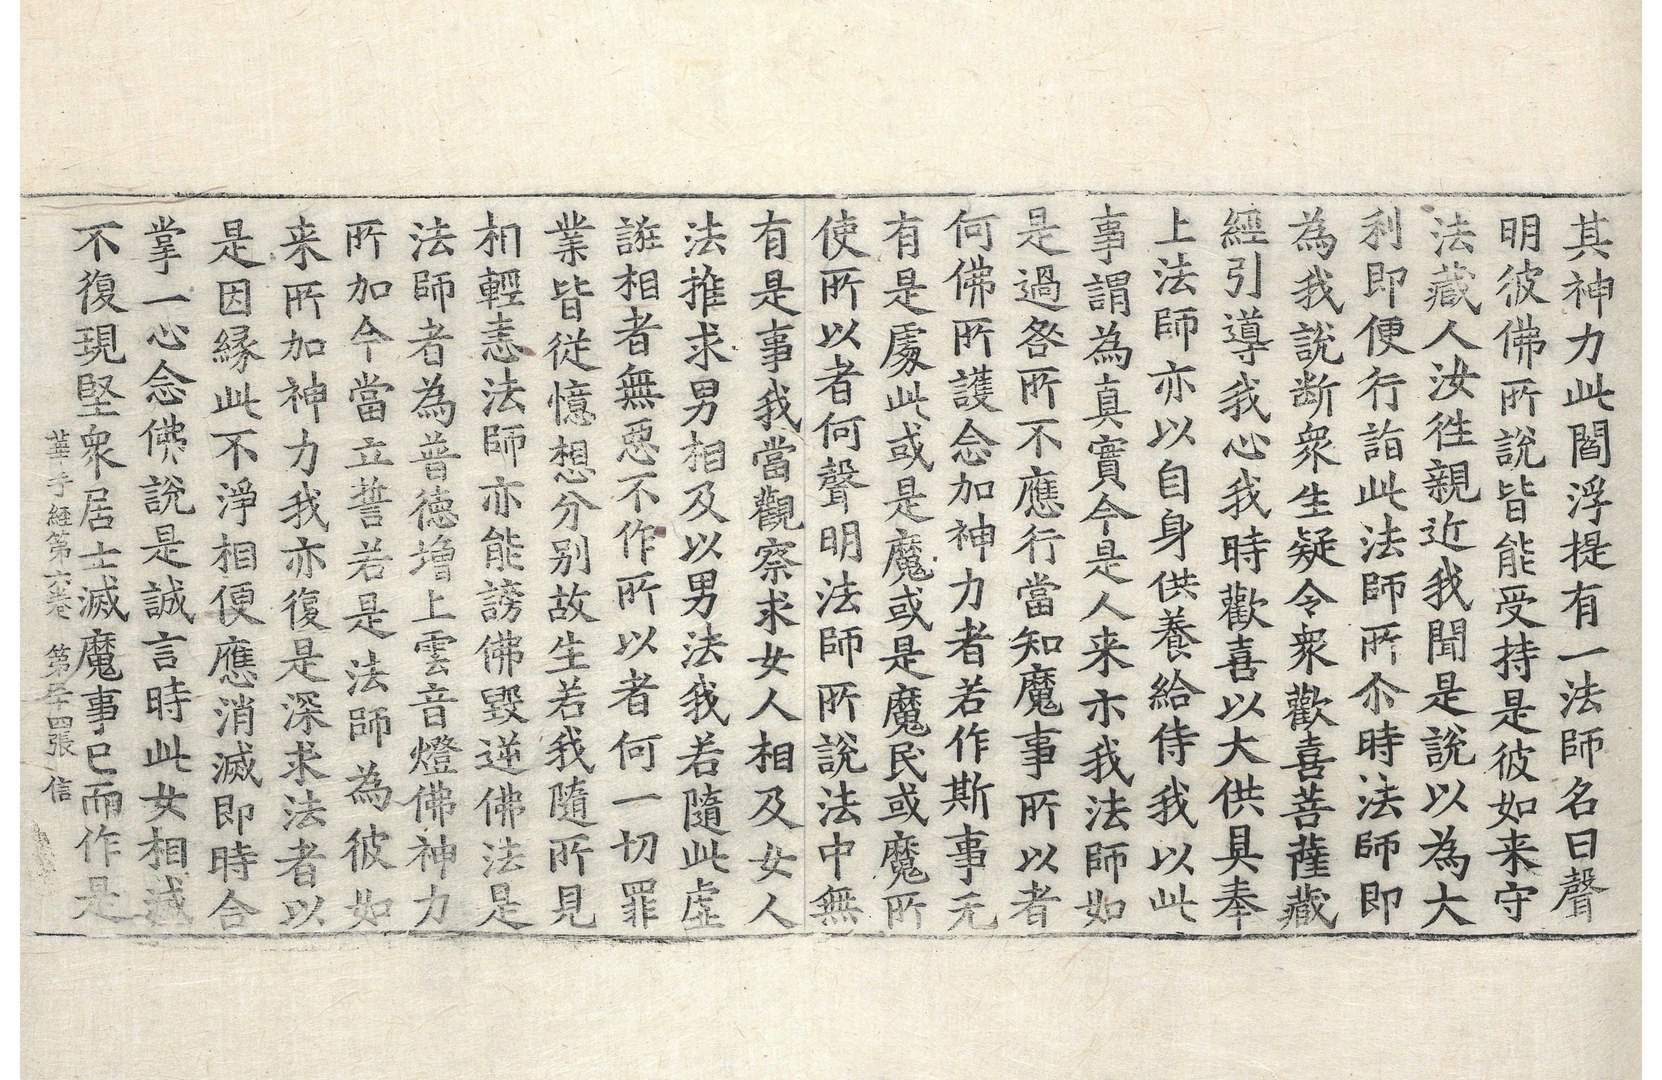 其神力此閻浮提有一法師名曰聲
明彼佛所說皆能受持是彼如来守
法藏人汝往親近我聞是說以為大
利即便行詣此法師所尒時法師即
為我說断衆生疑令衆歡喜菩薩藏
經引導我心我時歡喜以大供具奉
上法師亦以自身供養給侍我以此
事謂為真實今是人来示我法師如
是過咎所不應行當知魔事所以者
何佛所護念加神力者若作斯事无
有是處此或是魔或是魔民或魔所
使所以者何聲明法師所說法中無
有是事我當觀察求女人相及女人
法推求男相及以男法我若隨此虛
誑相者無惡不作所以者何一切罪
業皆從憶想分别故生若我隨所見
相輕恚法師亦能謗佛毀逆佛法是
法師者為普德增上雲音燈佛神力
所加今當立誓若是法師為彼如
来所加神力我亦復是深求法者以
是因縁此不淨相便應消滅即時合
掌一心念佛說是誠言時此女相滅
不復現堅衆居士滅魔事已而作是
華手經第六卷 第二十四張 信